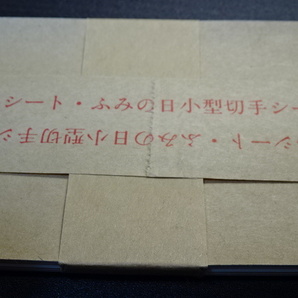 シート・ふみの日小型切手シー
シート・ふみの日小型切手シ